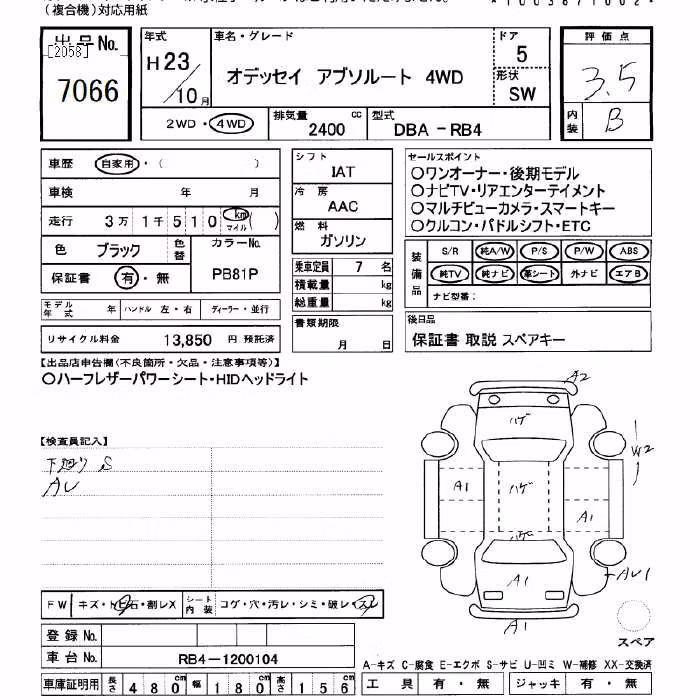 (複合機)対応用紙
出品No.
[2058]
7066
年式
H23/10月
車名・グレード
オデッセイ アブソルート 4WD
ドア
5
形状
SW
評価点
3.5
内装
B
2WD・4WD
排気量
2400 cc
型式
DBA-RB4
車歴 自家用・( )
車検 年 月
走行 3万1千510 km マイル ( )
色 ブラック 色替
カラーNo.
PB81P
保証書 有・無
モデル年式 年 ハンドル 左・右 ディーラー・並行
リサイクル料金 13,850 円 預託済
シフト
IAT
冷房
AAC
燃料
ガソリン
乗車定員 7 名
積載量 kg
総重量 kg
書類期限
月 日
セールスポイント
○ワンオーナー・後期モデル
○ナビTV・リアエンターテイメント
○マルチビューカメラ・スマートキー
○クルコン・パドルシフト・ETC
装備品
S/R 純A/W P/S P/W ABS
純TV 純ナビ 革シート 外ナビ エアB
ナビ型番:
後日品
保証書 取説 スペアキー
【出品店申告欄(不良箇所・欠品・注意事項等)】
○ハーフレザーパワーシート・HIDヘッドライト
【検査員記入】
下廻り S
AU
A2
ハゲ
W2
A1
ハゲ
A1
ハゲ
A1
AU1
A1
スペア
FW キズ・飛石・割レX
シート内装 コゲ・穴・汚レ・シミ・破レ・スレ
登録No.
車台No. RB4-1200104
車庫証明用 長さ 480 幅 180 高さ 156
A-キズ C-腐食 E-エクボ S-サビ U-凹ミ W-補修 XX-交換済
工具 有・無 ジャッキ 有・無